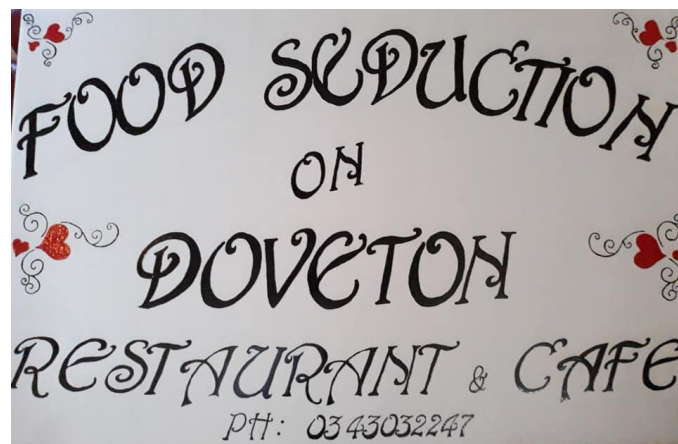 FOOD SEDUCTION
ON
DOVETON
RESTAURANT & CAFE
PH: 03 43032247